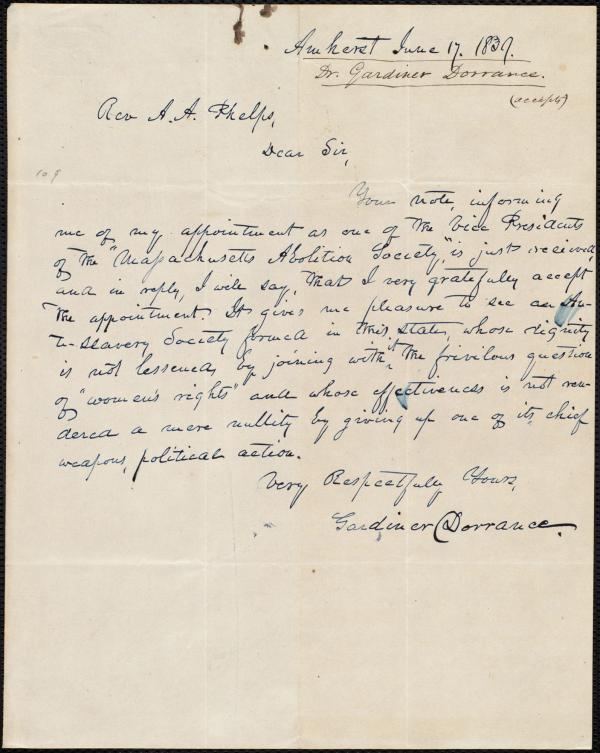 Amherst June 17. 1839.
Dr. Gardiner Dorrance.
(accepts)
Rev A. A. Phelps,
Dear Sir,
109
Your note, informing
me of my appointment as one of the Vice Presidents
of the "Massachusetts Abolition Society", is just received,
and in reply, I will say, that I very gratefully accept
the appointment. It gives me pleasure to see an An-
ti-slavery Society formed in this state, whose dignity
is not lessened by joining with it the frivilous question
of "women's rights" and whose effectiveness is not ren-
dered a mere nullity by giving up one of its chief
weapons, political action.
Very Respectfully Yours,
Gardiner Dorrance.